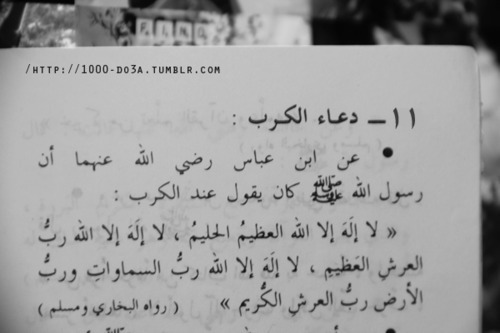 /HTTP://1000-DO3A.TUMBLR.COM
١١ــ دعاء الكرب :
• عن ابن عباس رضي الله عنهما أن
رسول الله ﷺ كان يقول عند الكرب :
« لا إلَهَ إلا الله العظيمُ الحليمُ ، لا إلَهَ إلا الله ربُّ
العرشِ العَظيمِ ، لا إلَهَ إلا الله ربُّ السماواتِ وربُّ
الأرضِ ربُّ العرشِ الكَريم » ( رواه البخاري ومسلم )